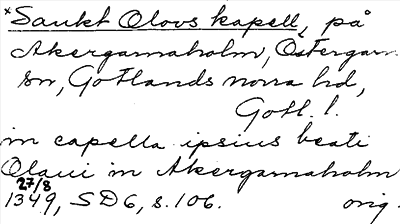 *Sankt Olovs kapell, på
Akergarnaholm, Östergarn
sn, Gotlands norra hd,
Gotl. l.
in capella ipsius beati
Olaui in Akergarnaholm
27/8
1349, SD 6, s. 106. orig.